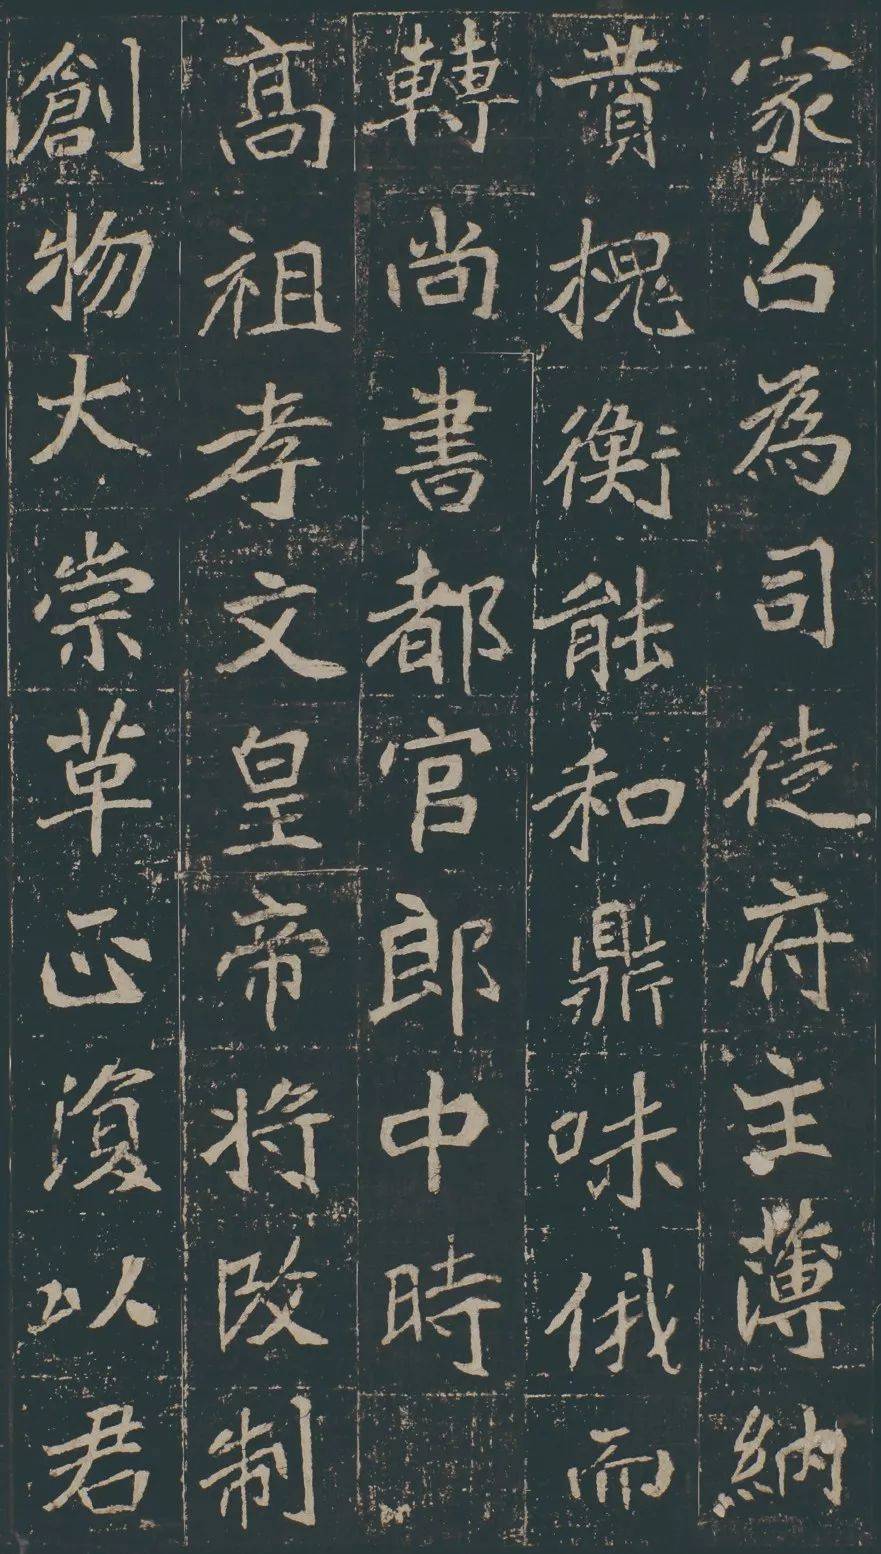 家召為司徒府主薄納
賛槐衡能和鼎味俄而
轉尚書都官郎中時
髙祖孝文皇帝将改制
創物大崇革正復以君